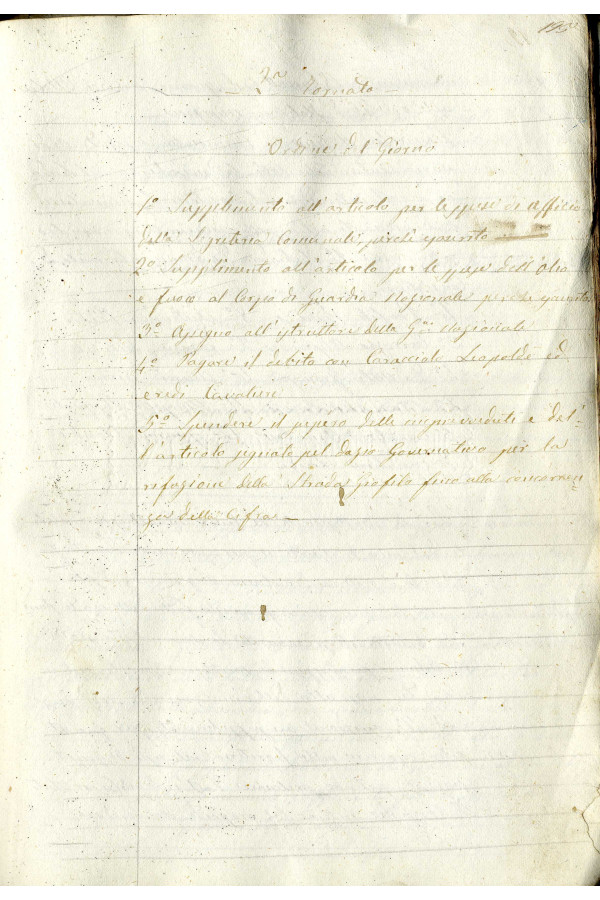 — 2ª Tornata —
Ordine del Giorno
1º Supplimento all'articolo per le spese di Uffizio
della Segreteria Comunale, perchè esaurito
2º Supplimento all'articolo per le spese dell'Olio
e fuoco al Corpo di Guardia Nazionale perchè esaurito
3º Assegno all'istruttore della Gª Nazionale
4º Pagare il debito con Caracciolo Leopoldo ed
eredi Cavalieri
5º Spendere il riposo delle imprevedute e del-
l'articolo segnato pel dazio Governativo per la
refazione della Strada fino alla concorren-
za della Cifra —